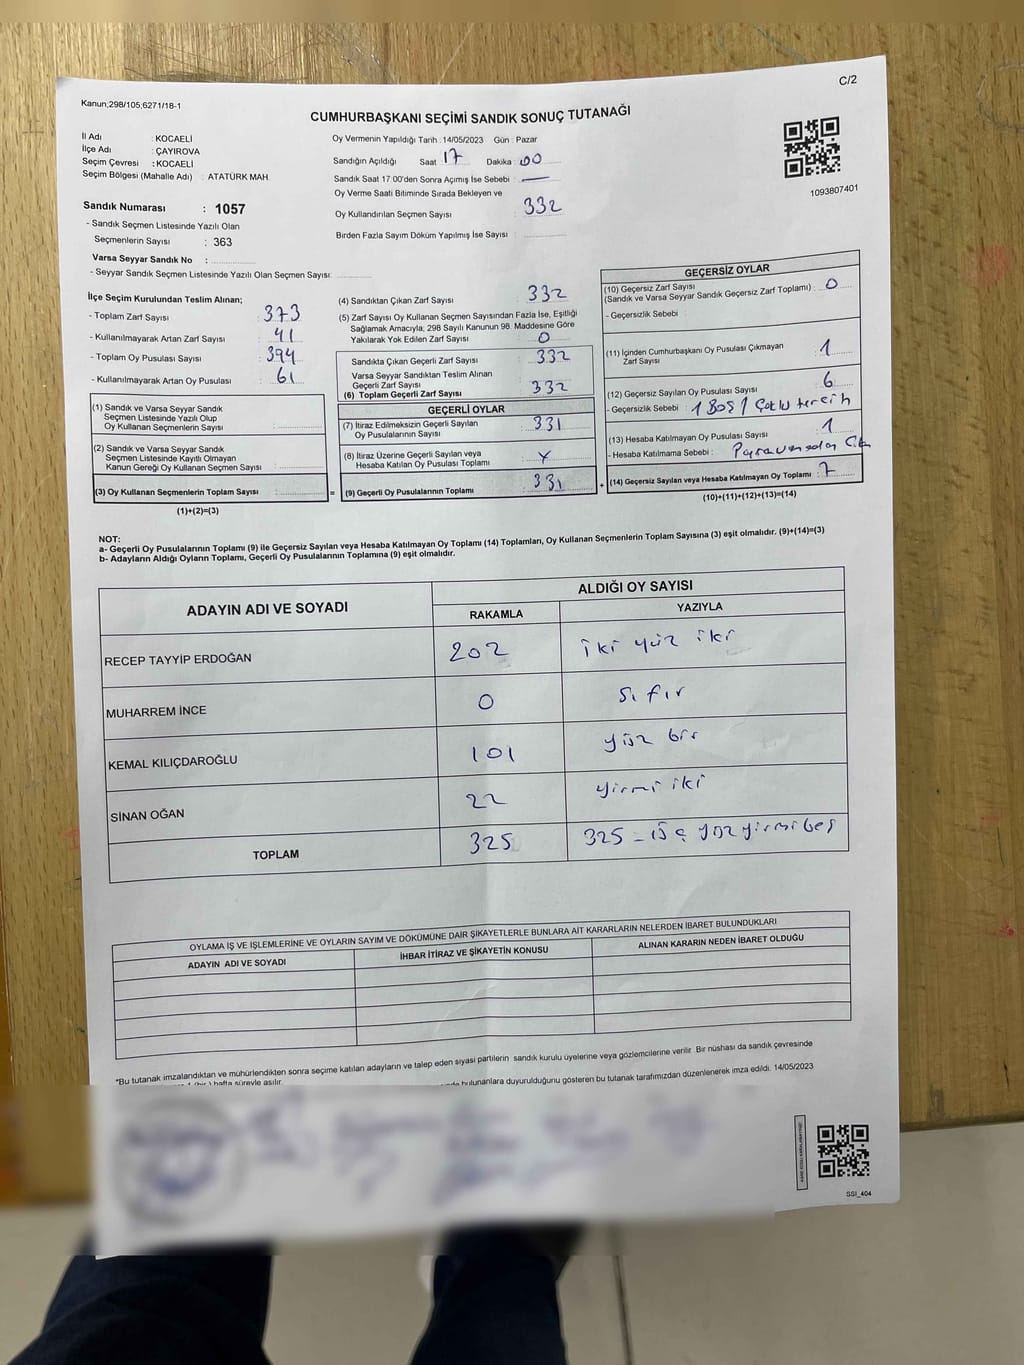 C/2
Kanun;298/105;6271/18-1
CUMHURBAŞKANI SEÇİMİ SANDIK SONUÇ TUTANAĞI
İl Adı : KOCAELİ
İlçe Adı : ÇAYIROVA
Seçim Çevresi : KOCAELİ
Seçim Bölgesi (Mahalle Adı) : ATATÜRK MAH.
Sandık Numarası : 1057
- Sandık Seçmen Listesinde Yazılı Olan
Seçmenlerin Sayısı : 363
Varsa Seyyar Sandık No :
- Seyyar Sandık Seçmen Listesinde Yazılı Olan Seçmen Sayısı:
Oy Vermenin Yapıldığı Tarih : 14/05/2023 Gün : Pazar
Sandığın Açıldığı Saat : 17 Dakika : 00
Sandık Saat 17:00'den Sonra Açımış İse Sebebi : —
Oy Verme Saati Bitiminde Sırada Bekleyen ve
Oy Kullandırılan Seçmen Sayısı : 332
Birden Fazla Sayım Döküm Yapılmış İse Sayısı :
1093807401
İlçe Seçim Kurulundan Teslim Alınan;
- Toplam Zarf Sayısı : 373
- Kullanılmayarak Artan Zarf Sayısı : 41
- Toplam Oy Pusulası Sayısı : 394
- Kullanılmayarak Artan Oy Pusulası : 61
(1) Sandık ve Varsa Seyyar Sandık
Seçmen Listesinde Yazılı Olup
Oy Kullanan Seçmenlerin Sayısı :
(2) Sandık ve Varsa Seyyar Sandık
Seçmen Listesinde Kayıtlı Olmayan
Kanun Gereği Oy Kullanan Seçmen Sayısı :
(3) Oy Kullanan Seçmenlerin Toplam Sayısı :
(1)+(2)=(3)
(4) Sandıktan Çıkan Zarf Sayısı : 332
(5) Zarf Sayısı Oy Kullanan Seçmen Sayısından Fazla İse, Eşitliği
Sağlamak Amacıyla; 298 Sayılı Kanunun 98. Maddesine Göre
Yakılarak Yok Edilen Zarf Sayısı : 0
Sandıkta Çıkan Geçerli Zarf Sayısı : 332
Varsa Seyyar Sandıktan Teslim Alınan
Geçerli Zarf Sayısı :
(6) Toplam Geçerli Zarf Sayısı : 332
GEÇERLİ OYLAR
(7) İtiraz Edilmeksizin Geçerli Sayılan
Oy Pusulalarının Sayısı : 331
(8) İtiraz Üzerine Geçerli Sayılan veya
Hesaba Katılan Oy Pusulası Toplamı :
= (9) Geçerli Oy Pusulalarının Toplamı : 331
GEÇERSİZ OYLAR
(10) Geçersiz Zarf Sayısı
(Sandık ve Varsa Seyyar Sandık Geçersiz Zarf Toplamı) : 0
- Geçersizlik Sebebi :
(11) İçinden Cumhurbaşkanı Oy Pusulası Çıkmayan
Zarf Sayısı : 1
(12) Geçersiz Sayılan Oy Pusulası Sayısı : 6
- Geçersizlik Sebebi : 1 Boş 1 Çoklu tercih
(13) Hesaba Katılmayan Oy Pusulası Sayısı : 1
- Hesaba Katılmama Sebebi :
+ (14) Geçersiz Sayılan veya Hesaba Katılmayan Oy Toplamı : 7
(10)+(11)+(12)+(13)=(14)
NOT:
a- Geçerli Oy Pusulalarının Toplamı (9) ile Geçersiz Sayılan veya Hesaba Katılmayan Oy Toplamı (14) Toplamları, Oy Kullanan Seçmenlerin Toplam Sayısına (3) eşit olmalıdır. (9)+(14)=(3)
b- Adayların Aldığı Oyların Toplamı, Geçerli Oy Pusulalarının Toplamına (9) eşit olmalıdır.
ADAYIN ADI VE SOYADI ALDIĞI OY SAYISI
RAKAMLA YAZIYLA
RECEP TAYYİP ERDOĞAN 202 iki yüz iki
MUHARREM İNCE 0 sıfır
KEMAL KILIÇDAROĞLU 101 yüz bir
SİNAN OĞAN 22 yirmi iki
TOPLAM 325 325 - üç yüz yirmi beş
OYLAMA İŞ VE İŞLEMLERİNE VE OYLARIN SAYIM VE DÖKÜMÜNE DAİR ŞİKAYETLERLE BUNLARA AİT KARARLARIN NELERDEN İBARET BULUNDUKLARI
ADAYIN ADI VE SOYADI İHBAR İTİRAZ VE ŞİKAYETİN KONUSU ALINAN KARARIN NEDEN İBARET OLDUĞU
*Bu tutanak imzalandıktan ve mühürlendikten sonra seçime katılan adayların ve talep eden siyasi partilerin sandık kurulu üyelerine veya gözlemcilerine verilir. Bir nüshası da sandık çevresinde
hafta süreyle asılır. bulunanlara duyurulduğunu gösteren bu tutanak tarafımızdan düzenlenerek imza edildi. 14/05/2023
SSI_404